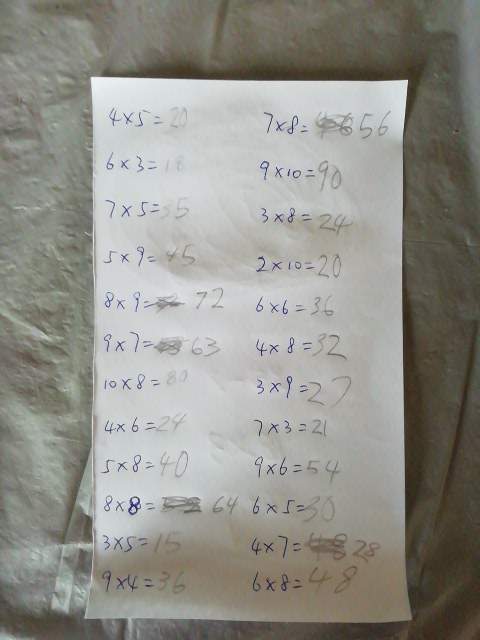 4×5=20
6×3=18
7×5=35
5×9=45
8×9= 72
9×7= 63
10×8=80
4×6=24
5×8=40
8×8= 64
3×5=15
9×4=36
7×8= 56
9×10=90
3×8=24
2×10=20
6×6=36
4×8=32
3×9=27
7×3=21
9×6=54
6×5=30
4×7= 28
6×8=48